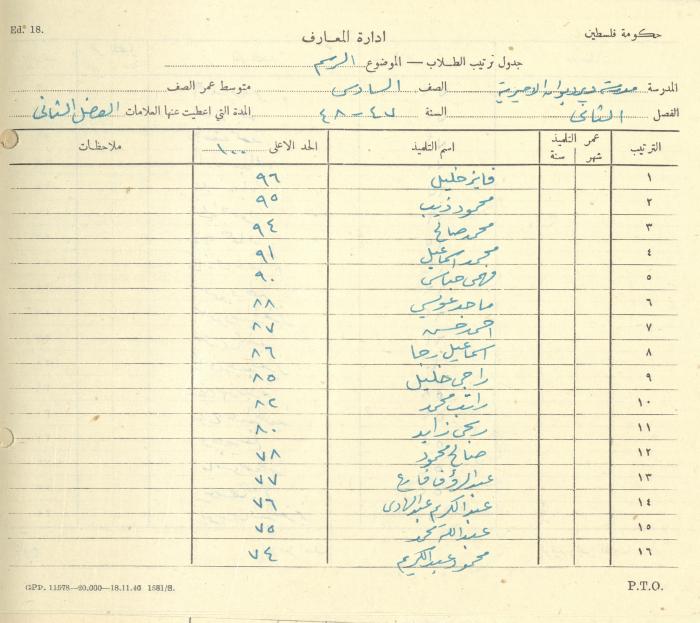 Ed. 18.
حكومة فلسطين
ادارة المعارف
جدول ترتيب الطلاب — الموضوع الرسم
المدرسة مدرسة الاميرية الصف السادس متوسط عمر الصف
الفصل الثاني السنة ٤٧-٤٨ المدة التي اعطيت عنها العلامات الفصل الثاني
الترتيب عمر التلميذ شهر سنة اسم التلميذ الحد الاعلى ١٠٠ ملاحظات
١ فايز خليل ٩٦
٢ محمود ذيب ٩٥
٣ محمد صالح ٩٤
٤ محمد اسماعيل ٩١
٥ فهمي عباسي ٩٠
٦ ماجد عويسي ٨٨
٧ احمد حسن ٨٧
٨ اسماعيل رجا ٨٦
٩ راجي خليل ٨٥
١٠ راتب محمد ٨٢
١١ ربحي زايد ٨٠
١٢ صالح محمود ٧٨
١٣ عبد الرؤف فارع ٧٧
١٤ عبد الكريم عبد الهادي ٧٦
١٥ عبد الله محمد ٧٥
١٦ محمود عبد الكريم ٧٤
GPP. 11578—20.000—18.11.46 1581/S.
P.T.O.